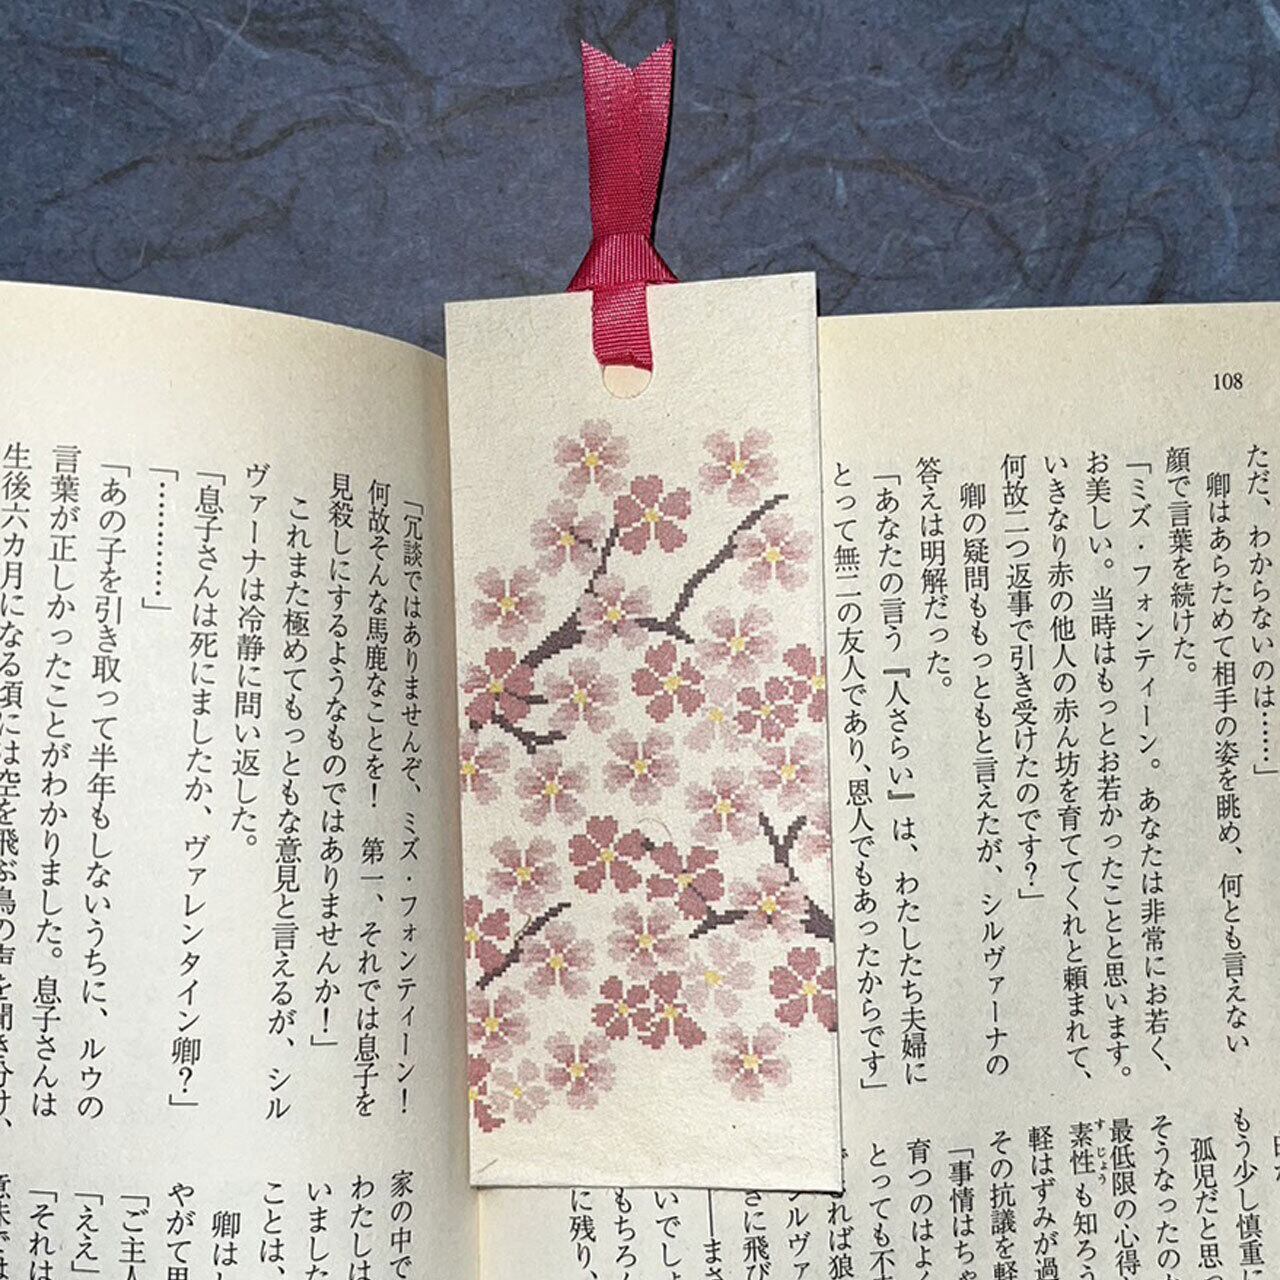 108
ただ、わからないのは……」
卿はあらためて相手の姿を眺め、何とも言えない
顔で言葉を続けた。
「ミズ・フォンティーン。あなたは非常にお若く、
お美しい。当時はもっとお若かったことと思います。
いきなり赤の他人の赤ん坊を育ててくれと頼まれて、
何故二つ返事で引き受けたのです？」
卿の疑問ももっともと言えたが、シルヴァーナの
答えは明解だった。
「あなたの言う『人さらい』は、わたしたち夫婦に
とって無二の友人であり、恩人でもあったからです」
もう少し慎重に
孤児だと思
そうなったの
最低限の心得
素性も知ろう
すじょう
軽はずみが過
その抗議を軽
「事情はちゃ
育つのはよく
とっても不
ければ狼
シルヴァ
さに飛び
――まさ
いでしょ
もちろん
に残り、
「冗談ではありませんぞ、ミズ・フォンティーン！
何故そんな馬鹿なことを！　第一、それでは息子を
見殺しにするようなものではありませんか！」
これまた極めてもっともな意見と言えるが、シル
ヴァーナは冷静に問い返した。
「息子さんは死にましたか、ヴァレンタイン卿？」
「…………」
「あの子を引き取って半年もしないうちに、ルウの
言葉が正しかったことがわかりました。息子さんは
生後六カ月になる頃には空を飛ぶ鳥の声を聞き分け、
家の中で
わたしは
いました
ことは、
卿はし
やがて思
「ご主人
「ええ」
「それは
意味では